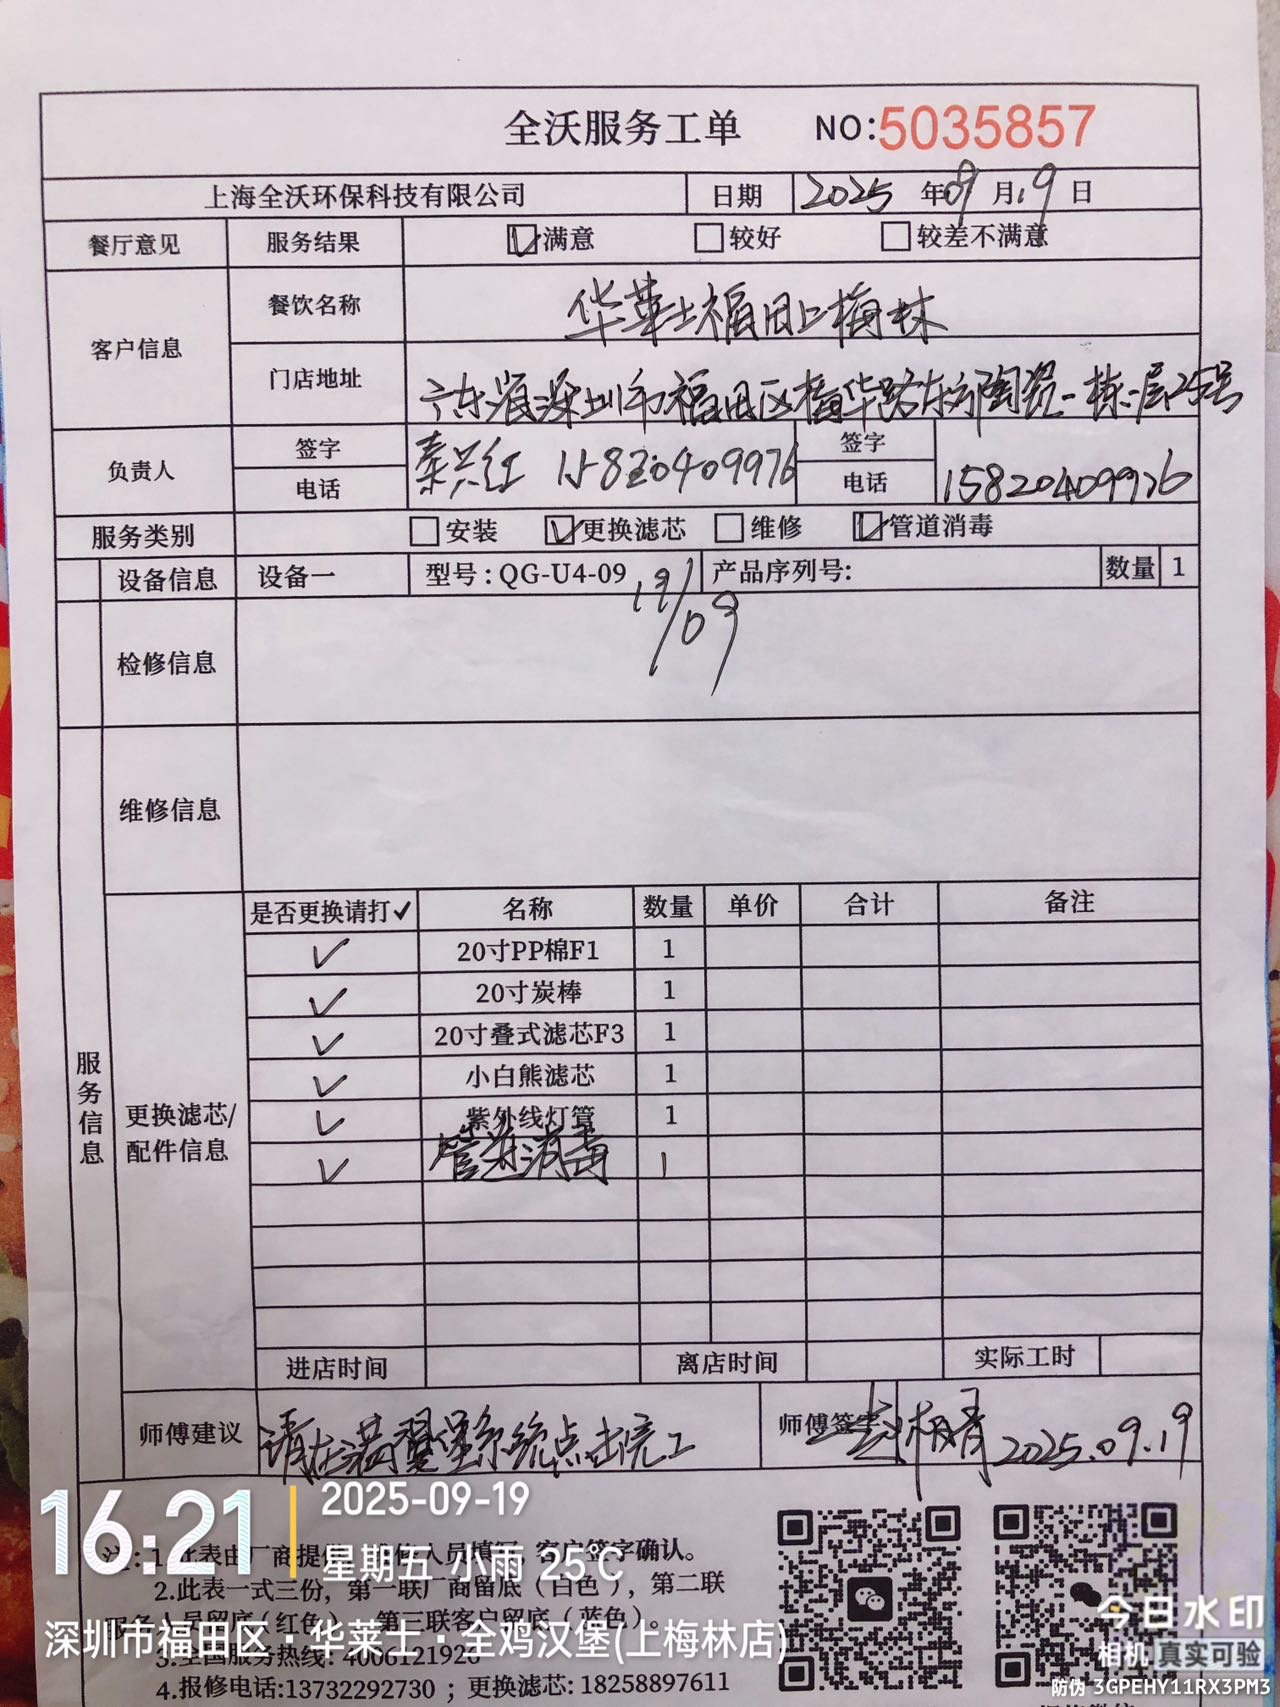 全沃服务工单 NO:5035857
上海全沃环保科技有限公司 日期 2025 年 09 月 19 日
餐厅意见 服务结果 满意 较好 较差不满意
客户信息 餐饮名称 华莱士福田上梅林
门店地址 广东省深圳市福田区梅华路东方陶瓷一栋一层25号
负责人 签字 秦兴红 15820409976 签字
电话 15820409976 电话
服务类别 安装 更换滤芯 维修 管道消毒
设备信息 设备一 型号：QG-U4-09 产品序列号: 数量 1
19/09
检修信息
维修信息
服务信息
更换滤芯/
配件信息
是否更换请打✓ 名称 数量 单价 合计 备注
✓ 20寸PP棉F1 1
✓ 20寸炭棒 1
✓ 20寸叠式滤芯F3 1
✓ 小白熊滤芯 1
✓ 紫外线灯管 1
✓ 管道消毒 1
进店时间 离店时间 实际工时
师傅建议 请在满置堡系统点击完工 师傅签字 2025.09.19
注：1.此表由厂商提 人员填 ，客户签字确认。
2.此表一式三份，第一联厂商留底（白色），第二联
服务人员留底（红色），第三联客户留底（蓝色）。
3.全国服务热线: 4006121920
4.报修电话:13732292730 ；更换滤芯: 18258897611
16:21 2025-09-19
星期五 小雨 25℃
深圳市福田区·华莱士·全鸡汉堡(上梅林店)
今日水印
相机 真实可验
防伪 3GPEHY11RX3PM3